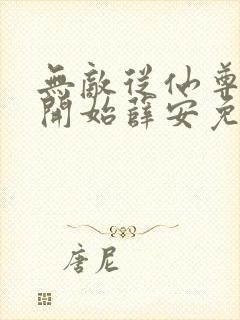 無敵從仙尊
開始薛安免
唐尼